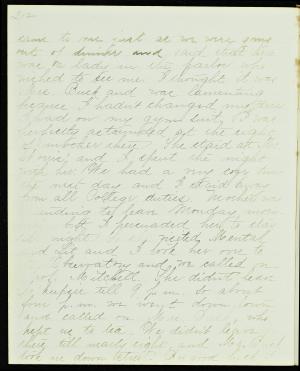 212
came to me just as we were going
out of dinner and said that there
was a lady in the parlor who
wished to see me. I thought it was
Mrs. Buck and was lamenting
because I hadn't changed my dress
I had on my gym suit, & was
perfectly astounded at the sight
of mother there. She staid at Mr.
and I spent the night
with her. We had a very cozy time
the next day and I staid away
from all College duties. Mother was
intending to leave Monday, morn
but I persuaded her to stay
night.
and I took her over to
Observatory and we called on
Mitchell. She didn't leave
till 9 p.m. So about
four p.m. we went down town
and called on Mrs. Buck, who
kept us to tea. We didn't leave
there till nearly eight, and Mr. Buck
took us down